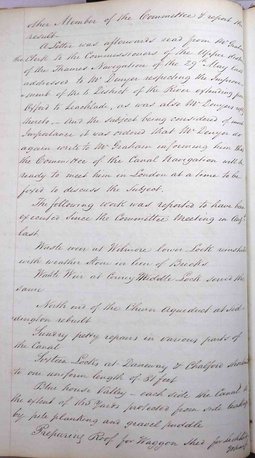 other Member of the Committee & report the
result—
A Letter was afterwards read from Mr.
the Clerk to the Commissioners of the Upper district
of the Thames Navigation of the 29th May last
addressed to Mr Denyer respecting the improve
ment of the District of the River extending from
Oxford to Lechlade, as was also Mr Denyers reply
thereto — And the subject being considered of much
Importance it was ordered that Mr Denyer do
again write to Mr Graham informing him that
the Committee of the Canal Navigation will be
ready to meet him in London at a time to be
fixed to discuss the Subject.
The following work was reported to have been
executed Since the Committee Meeting in
last
Waste weir at Wilmore lower Lock
with weather Stone in lieu of Bricks
Waste Weir at Middle Lock served the
same
North end of the Churn Aqueduct at Sid-
dington rebuilt
Sundry petty repairs in various parts of
the Canal
Locks at Daneway & Chalford
to one uniform length of feet
Blue house Valley — each side the Canal to
the extent of Yards protected from side
by pile planking and gravel puddle
Preparing Roof for Waggon Shed for